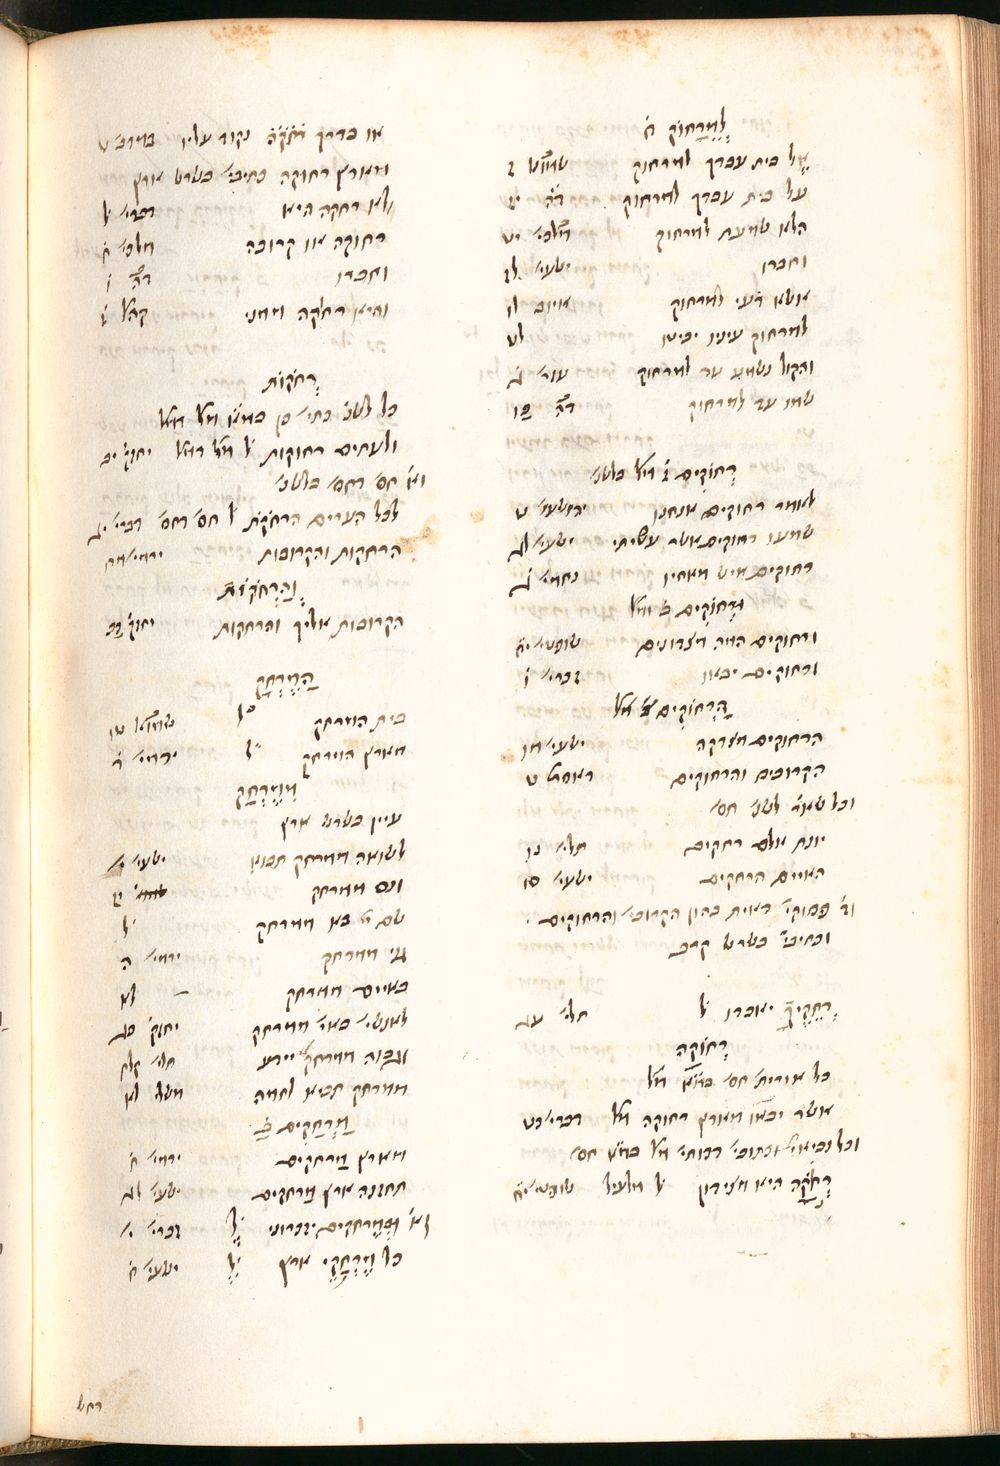 לְמֵרָחוֹק ח̇
אל בית עבדך למרחוק שמו״ש ז
על בית עבדך למרחוק ד״ה יז
הלא שמעת למרחוק מ״לכי׳ יט
וחברו ישעי׳ לז
אשא דעי למרחוק איוב לו
למרחוק עיניו יביטו לט
והקול נשמע עד למרחוק עזר׳ ג
שמו עד למרחוק ד״ה כו
רְחוֹקִים ג̇ מל׳ בלשנ׳
לאמר רחוקים אנחנו יהושע׳ ט
שמעו רחוקים אשר עשיתי ישעי׳ לג
רחוקים איש מאחיו נחמי׳ ד
וּרְחוֹקִים ב̇ מל׳
ורחוקים המה מצדונים שופטי׳ יח
ורחוקים יבאו זכרי׳ ו
הָרְחוֹקִים ב̇ מל׳
הרחוקים מצדקה ישעי׳ מו
הקרובים והרחוקים אסתר ט
וכל שאר לשנ׳ חס׳
יונת אלם רחקים תלי׳ נו
האיים הרחקים ישעי׳ סו
וג̇ פסוקי׳ דאית בהון הקרובי׳ והרחוקים
וכתיבי׳ בשרש קרב
רְחֵקֶיךָ יאבדו ל̇ תלי׳ עג
רְחוֹקָה
כל אורית׳ חס׳ במ״א מל׳
אשר יבאו מארץ רחוקה מל׳ דברי׳ כט
וכל נביאי׳ וכתובי׳ דכותי׳ מל׳ במ״א חס׳
רְחֹקָה היא מצידון ל̇ מלעיל שופטי׳ יח
או בדרך רחקה נקוד עליו במדב׳ ט
ומארץ רחוקה כתיבי׳ בשרש ארץ
ולא רחקה היא דברי׳ ל
רחוקה או קרובה מלכי׳ ח
וחברו ד״ה ו
והיא רחקה ממני קהל׳ ז
רְחֹקוֹת
כל לשנ׳ כתי׳ כן במ״א מל׳ מל׳
ולעתים רחוקות ל̇ מל׳ דמל׳ יחזק׳ יב
וא̇ חס׳ דחס׳ בלשנ׳
לכל הערים הרחקת ל̇ חס׳ דחס׳ דברי׳ כ
הרחקות והקרובות ירמי׳ מח
וְהָרְחֹקוֹת
הקרובות אליך והרחקות יחזק׳ כב
הַמֶּרְחָק
בית המרחק ל̇ שמו״א טו
מארץ המרחק ל̇ ירמי׳ ו
מִמֶּרְחָק
עיין בשרש ארץ
לשואה ממרחק תבוא ישעי׳ י
ונס ממרחק יז
שם יי׳ בא ממרחק ל
גוי ממרחק ירמי׳ ה
באיים ממרחק לא
לאנשי׳ באי׳ ממרחק יחזק׳ כג
וגבוה ממרחק יידע תלי׳ קלח
ממרחק תביא לחמה משלי לא
מַרְחַקִּים ב̇
מארץ מרחקים ירמי׳ ח
תחזנה ארץ מרחקים ישעי׳ לג
וא̇ וּבַמֶּרְחַקִּים יזכרוני ל̇ זכרי׳ י
כל מֶרְחַקֵּי ארץ ל̇ ישעי׳ ח
רחש